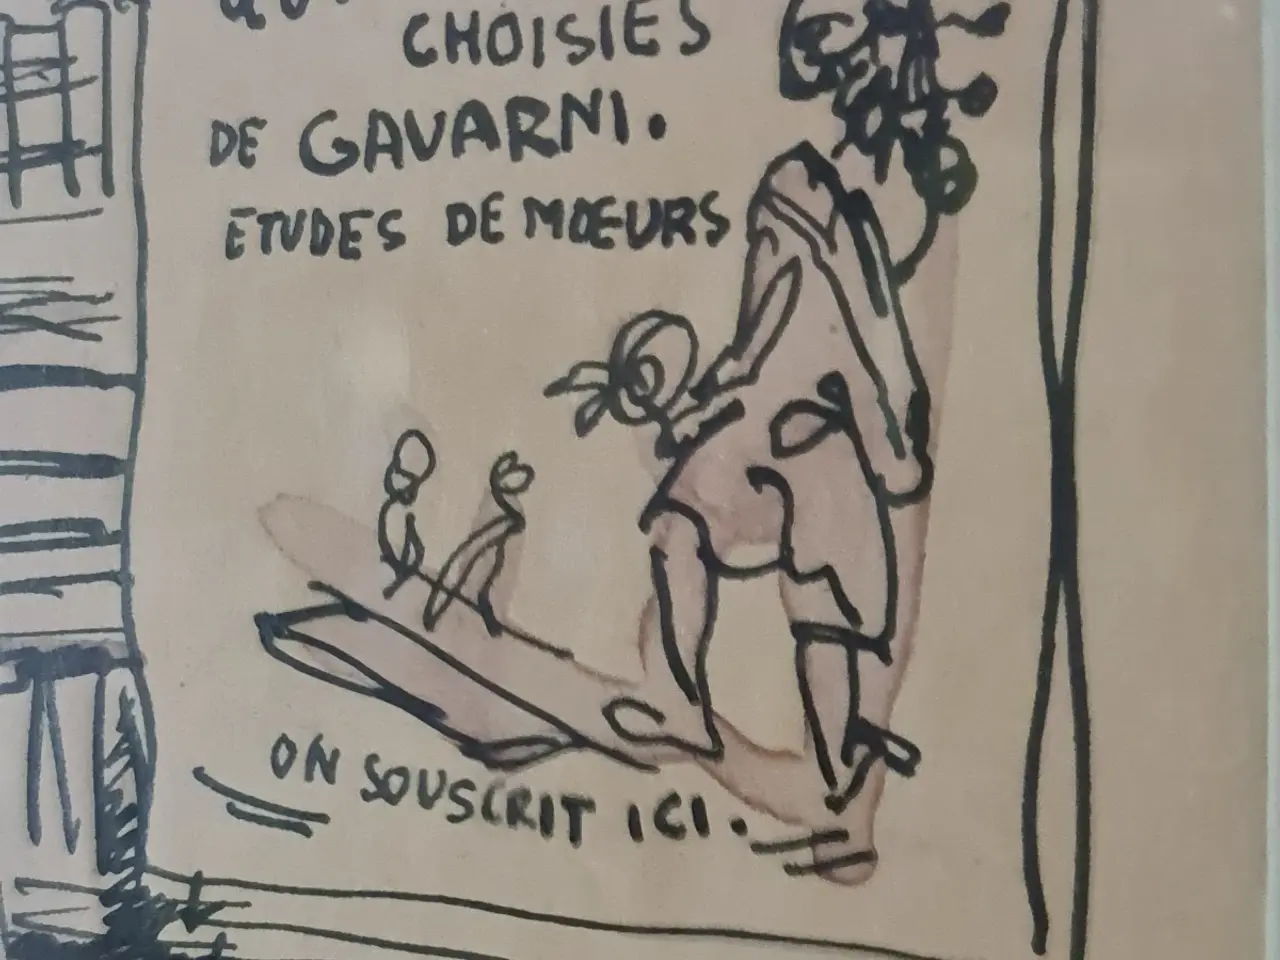 CHOISIES
DE GAVARNI.
ETUDES DE MŒURS
ON SOUSCRIT ICI.